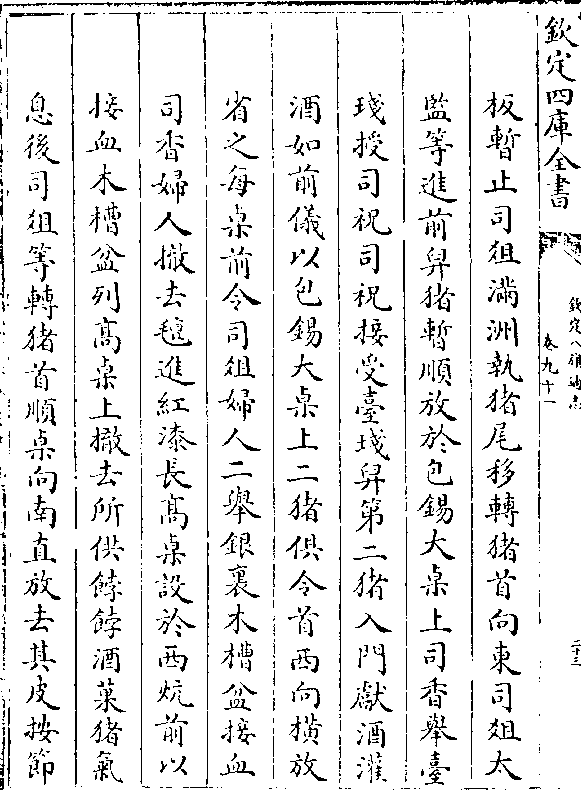 欽定四庫全書
欽定八旗通志
卷九十一
二十三
板暫止司俎滿洲執猪尾移轉猪首向東司俎太
監等進前舁猪暫順放於包錫大桌上司香舉臺
琖授司祝司祝接受臺琖舁第二猪入門獻酒灌
酒如前儀以包錫大桌上二猪俱令首西向横放
省之每桌前令司俎婦人二舉銀裏木槽盆接血
司香婦人撤去氊進紅漆長髙桌設於西炕前以
接血木槽盆列髙桌上撤去所供餑餑酒菓猪氣
息後司俎等轉猪首順桌向南直放去其皮按節